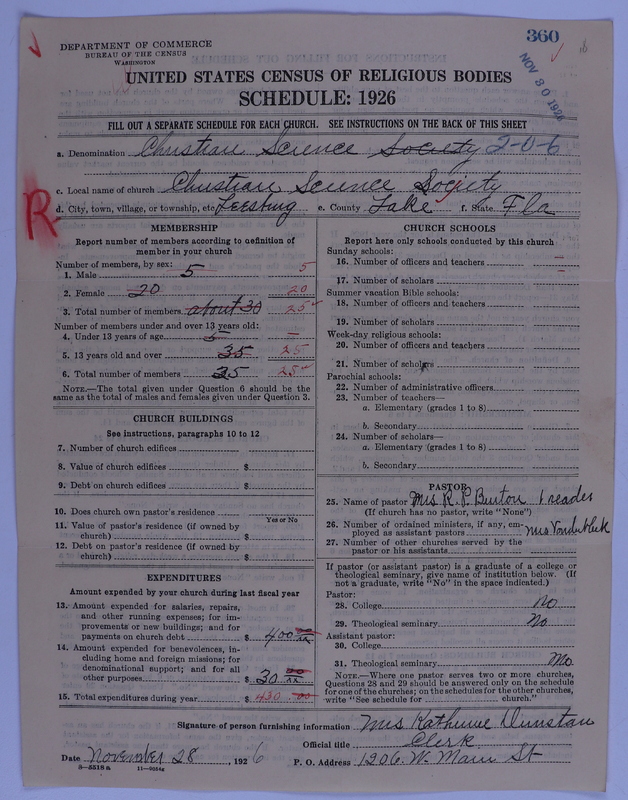 360
NOV 30 1926
DEPARTMENT OF COMMERCE
BUREAU OF THE CENSUS
WASHINGTON
UNITED STATES CENSUS OF RELIGIOUS BODIES
SCHEDULE: 1926
FILL OUT A SEPARATE SCHEDULE FOR EACH CHURCH. SEE INSTRUCTIONS ON THE BACK OF THIS SHEET
a. Denomination Christian Science Society 2-0-6
c. Local name of church Christian Science Society
R
d. City, town, village, or township, etc Leesburg e. County Lake f. State Fla
MEMBERSHIP
Report number of members according to definition of
member in your church
Number of members, by sex:
1. Male 5 5
2. Female 20 20
3. Total number of members about 30 25
Number of members under and over 13 years old:
4. Under 13 years of age 5 —
5. 13 years old and over 35 25
6. Total number of members 35 25
NOTE.—The total given under Question 6 should be the
same as the total of males and females given under Question 3.
CHURCH BUILDINGS
See instructions, paragraphs 10 to 12
7. Number of church edifices
8. Value of church edifices $
9. Debt on church edifices $
10. Does church own pastor's residence
Yes or No
11. Value of pastor's residence (if owned by
church) $
12. Debt on pastor's residence (if owned by
church) $
EXPENDITURES
Amount expended by your church during last fiscal year
13. Amount expended for salaries, repairs,
and other running expenses; for im-
provements or new buildings; and for
payments on church debt $ 400 00/xx
14. Amount expended for benevolences, in-
cluding home and foreign missions; for
denominational support; and for all
other purposes $ 30 00/xx
15. Total expenditures during year $ 430 00
CHURCH SCHOOLS
Report here only schools conducted by this church
Sunday schools:
16. Number of officers and teachers —
17. Number of scholars —
Summer vacation Bible schools:
18. Number of officers and teachers
19. Number of scholars
Week-day religious schools:
20. Number of officers and teachers
21. Number of scholars
Parochial schools:
22. Number of administrative officers
23. Number of teachers—
a. Elementary (grades 1 to 8)
b. Secondary
24. Number of scholars—
a. Elementary (grades 1 to 8)
b. Secondary
PASTOR
25. Name of pastor Mrs R. P. Burton 1 reader
(If church has no pastor, write "None")
26. Number of ordained ministers, if any, em-
ployed as assistant pastors Mrs
27. Number of other churches served by the
pastor or his assistants
If pastor (or assistant pastor) is a graduate of a college or
theological seminary, give name of institution below. (If
not a graduate, write "No" in the space indicated.)
Pastor:
28. College No
29. Theological seminary No
Assistant pastor:
30. College
31. Theological seminary No
NOTE.—Where one pastor serves two or more churches,
Questions 28 and 29 should be answered only on the schedule
for one of the churches; on the schedules for the other churches,
write "See schedule for church."
Signature of person furnishing information Mrs Katherine Dunstan
Official title Clerk
Date November 28, 1926 P. O. Address 1206 W. Main St
8—5518 a 11—9054